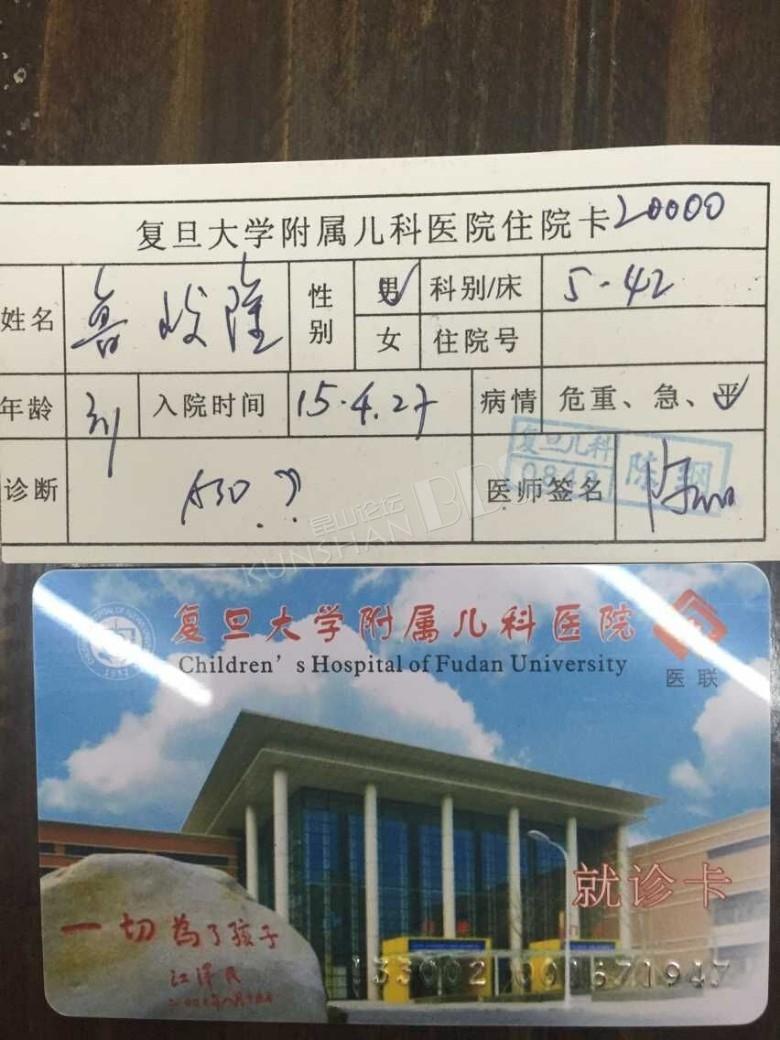 复旦大学附属儿科医院住院卡 20000
姓名 鲁峻隆 性别 男 科别/床 5-42
女 住院号
年龄 入院时间 15.4.27 病情 危重、急、平
诊断 ASD?? 医师签名
复旦儿科 0848 陈纲
昆山论坛
KUNSHAN BBS
复旦大学附属儿科医院
Children's Hospital of Fudan University
医联
1952
就诊卡
一切为了孩子
江泽民
133002 001671947